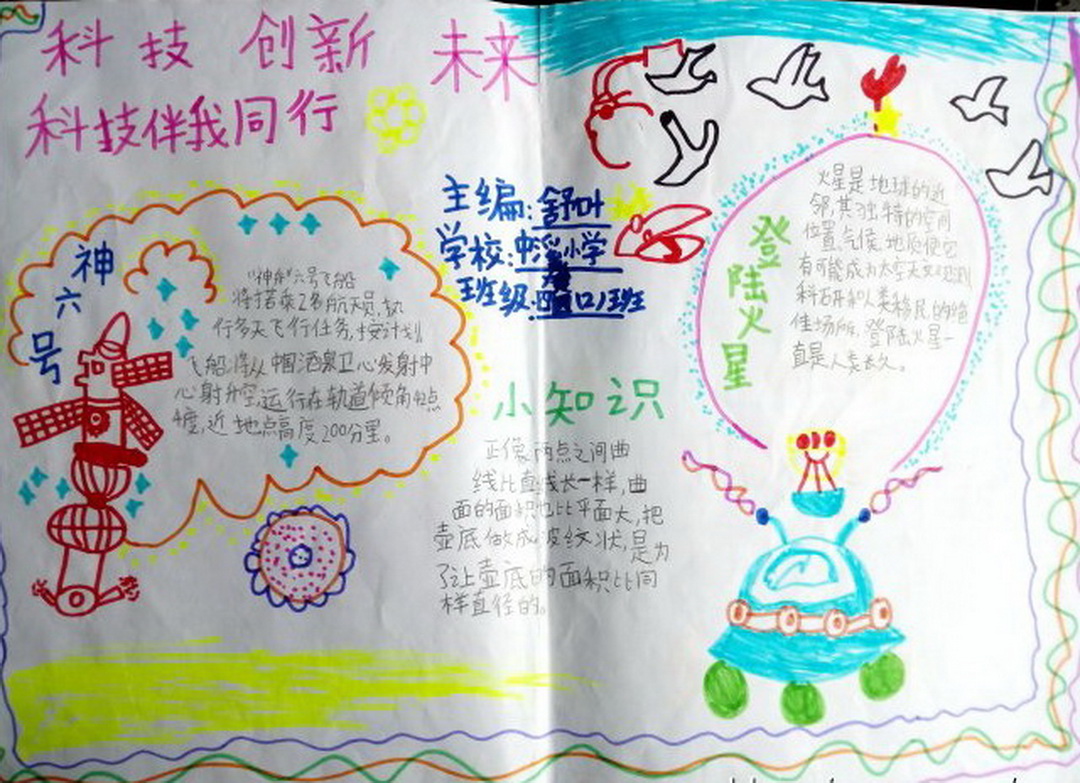 科技 创新 未来
科技伴我同行
主编:舒叶
学校:中心小学
班级:四(1)班
神六号
"神舟"六号飞船
将搭乘2名航天员,执
行多天飞行任务,按计划
飞船将从中国酒泉卫心发射中
心射升空,运行在轨道倾角42点
4度,近地点高度200分里。
小知识
正像两点之间曲
线比直线长一样,曲
面的面积也比平面大,把
壶底做成波纹状,是为
了让壶底的面积比同
样直径的。
登陆火星
火星是地球的近
邻,其独特的空间
位置,气候,地质使它
有可能成为太空天文观测
科研和人类移民的绝
佳场所,登陆火星一
直是人类长久。